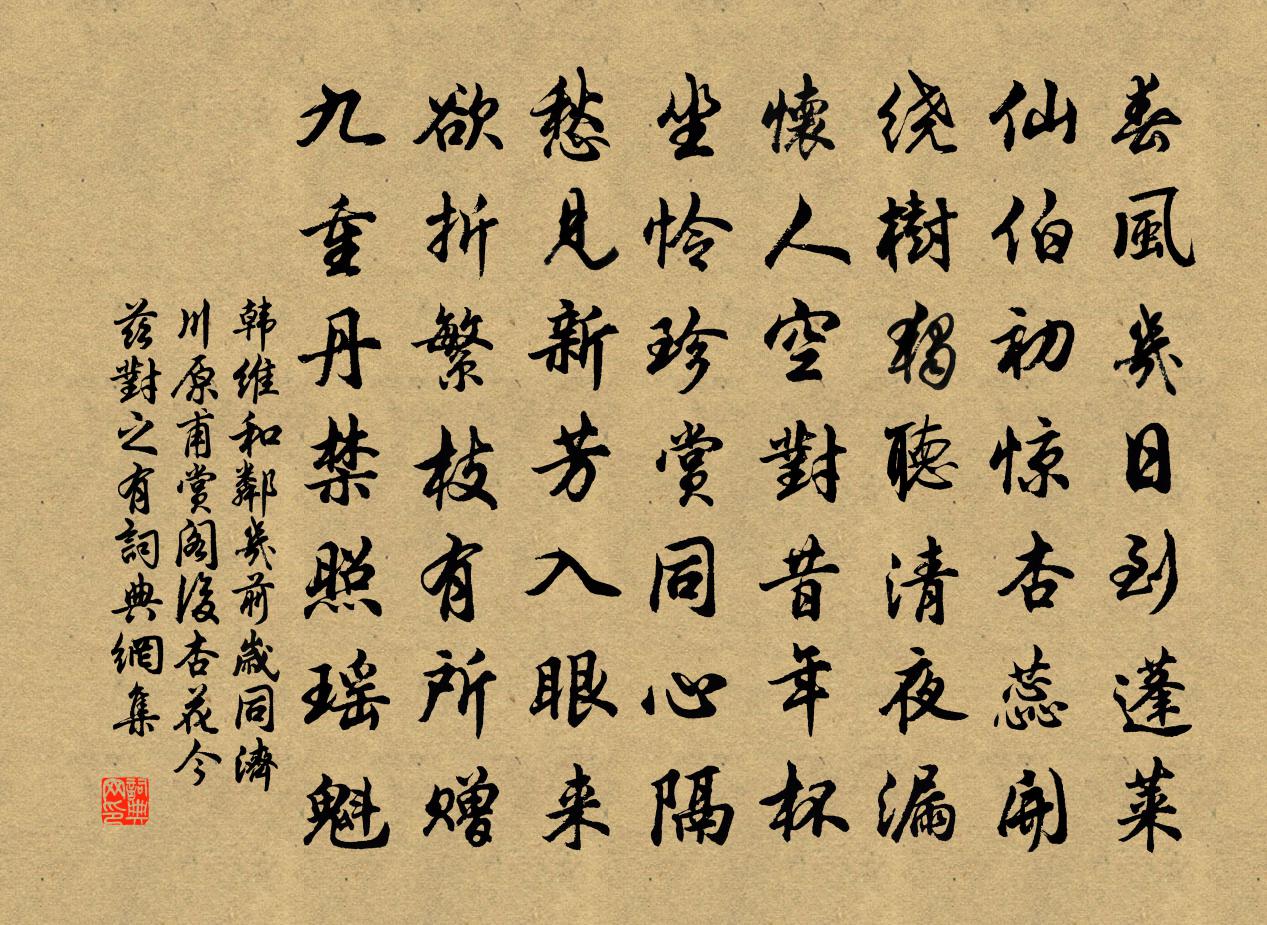 春風幾日到蓬萊
仙伯初惊杏蕊開
绕樹獨聽清夜漏
懷人空對昔年杯
坐怜珍赏同心隔
愁見新芳入眼来
欲折繁枝有所赠
九重丹禁照瑶魁
韩維和鄰幾前歲同濟
川原甫赏阁後杏花今
兹對之有詞典網集
詞典網印